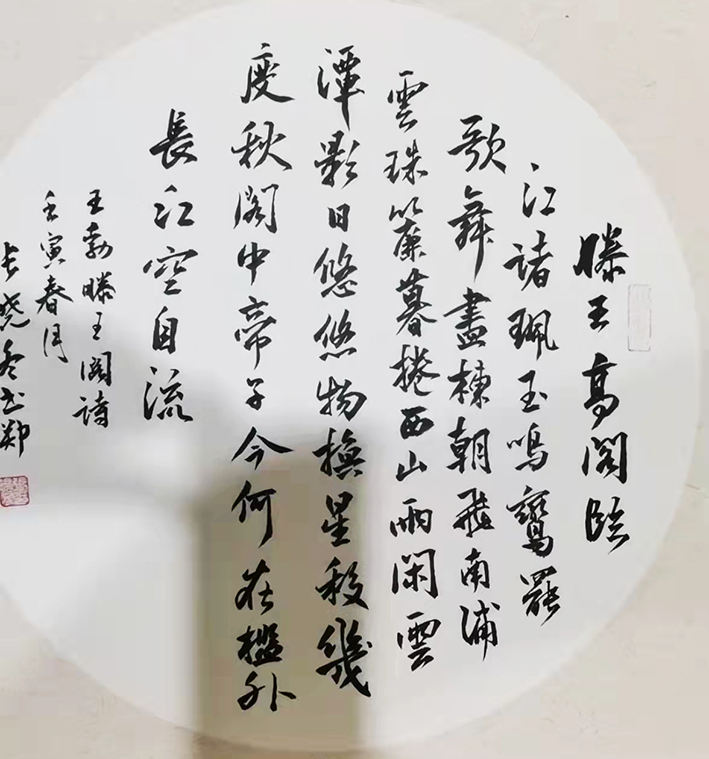 滕王高閣臨
江渚珮玉鳴鸞罷
歌舞畫棟朝飛南浦
雲珠簾暮捲西山雨閑雲
潭影日悠悠物換星移幾
度秋閣中帝子今何在檻外
長江空自流
王勃滕王閣詩
壬寅春月
书郑